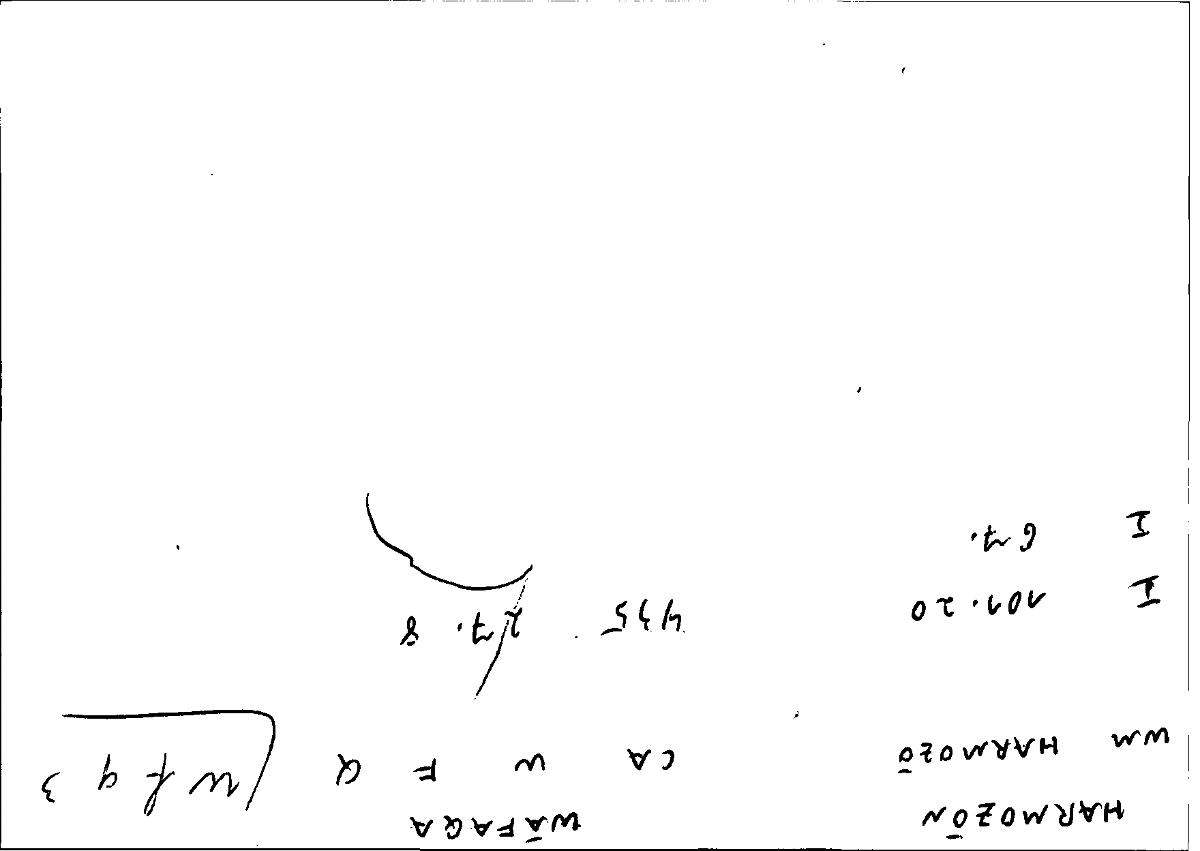 HARMOZŌN WĀFAQA
WM HARMOZŌ CA W F Q wfq 3
I 101.20 435 27.8
I 67.